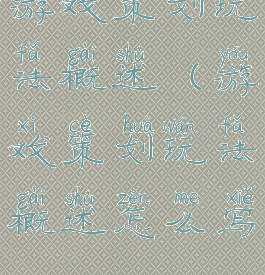 游戏策划玩
fǎ gài shù yóu
法概述（游
xì cè huà wán fǎ
戏策划玩法
gài shù zěn me xiě
概述怎么写